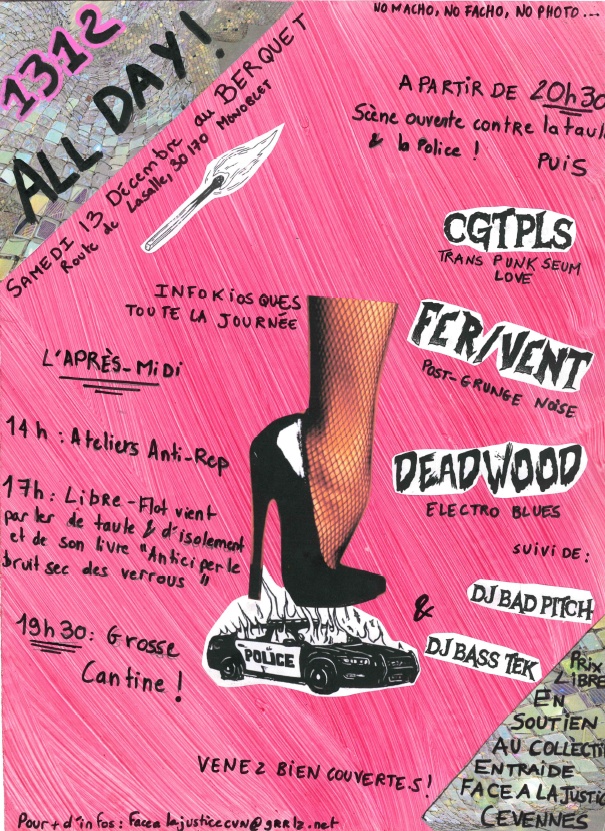 NO MACHO, NO FACHO, NO PHOTO...
1312
ALL DAY!
SAMEDI 13 Décembre au BERQUET
Route de Lasalle, 30170 MONOBLET
A PARTIR DE 20h30
Scène ouverte contre la taul
& la Police !
PUIS
CGTPLS
TRANS PUNK SEUM
LOVE
INFOKIOSQUES
TOUTE LA JOURNÉE
FER/VENT
POST-GRUNGE NOISE
L'APRÈS-MIDI
14h : Ateliers Anti-Rep
DEADWOOD
ELECTRO BLUES
17h : Libre-Flot vient
parler de taule & d'isolement
et de son livre "Anticiper le
bruit sec des verrous"
SUIVI DE :
DJ BAD PITCH
&
DJ BASS TEK
19h30 : Grosse
Cantine !
POLICE
Prix
LIBRE
EN
SOUTIEN
AU COLLECTI
ENTRAIDE
FACE A LA JUSTIC
CEVENNES
VENEZ BIEN COUVERTE.S !
Pour + d'infos : facealajusticecvn@grrlz.net